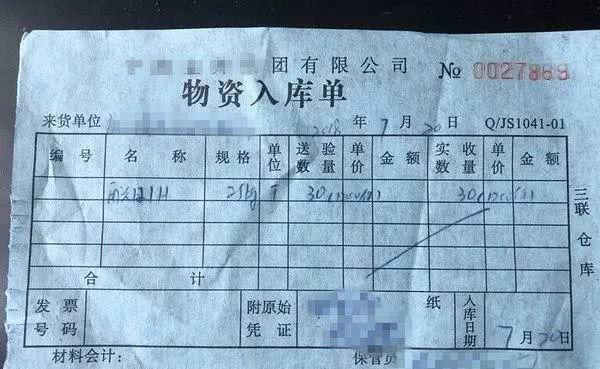 团有限公司 № 0027869
物资入库单
来货单位 2018年7月20日 Q/JS1041-01
编号 名称 规格 单位 送验数量 单价 金额 实收数量 单价 金额
25kg T 30 30
合计
三联仓库
发票号码 附原始凭证 纸 入库日期 7月20日
材料会计: 保管员